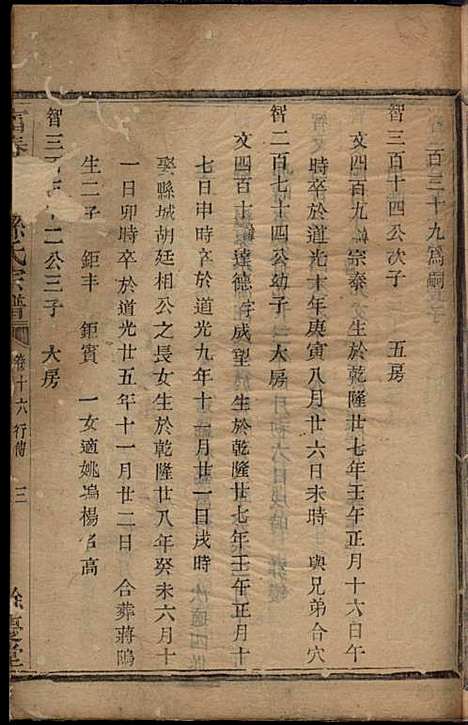 智二百三十九爲嗣子
智三百十四公次子 五房
文四百九 宗泰 生於乾隆廿七年壬午正月十六日午
時卒於道光十年庚寅八月廿六日未時 與兄弟合穴
智二百七十四公幼子 大房
文四百十 達德 字成望 生於乾隆廿七年壬午正月十
七日申時 卒於道光九年十一月廿一日戌時
娶縣城胡廷相公之長女生於乾隆廿八年癸未六月十
一日卯時 卒於道光廿五年十一月廿二日 合葬蔣鴟
生二子 鉅丰 鉅賓 一女適姚塢楊 高
智三百 十二公三子 大房
富春 孫氏宗譜 卷十六 行傳 三 餘慶堂